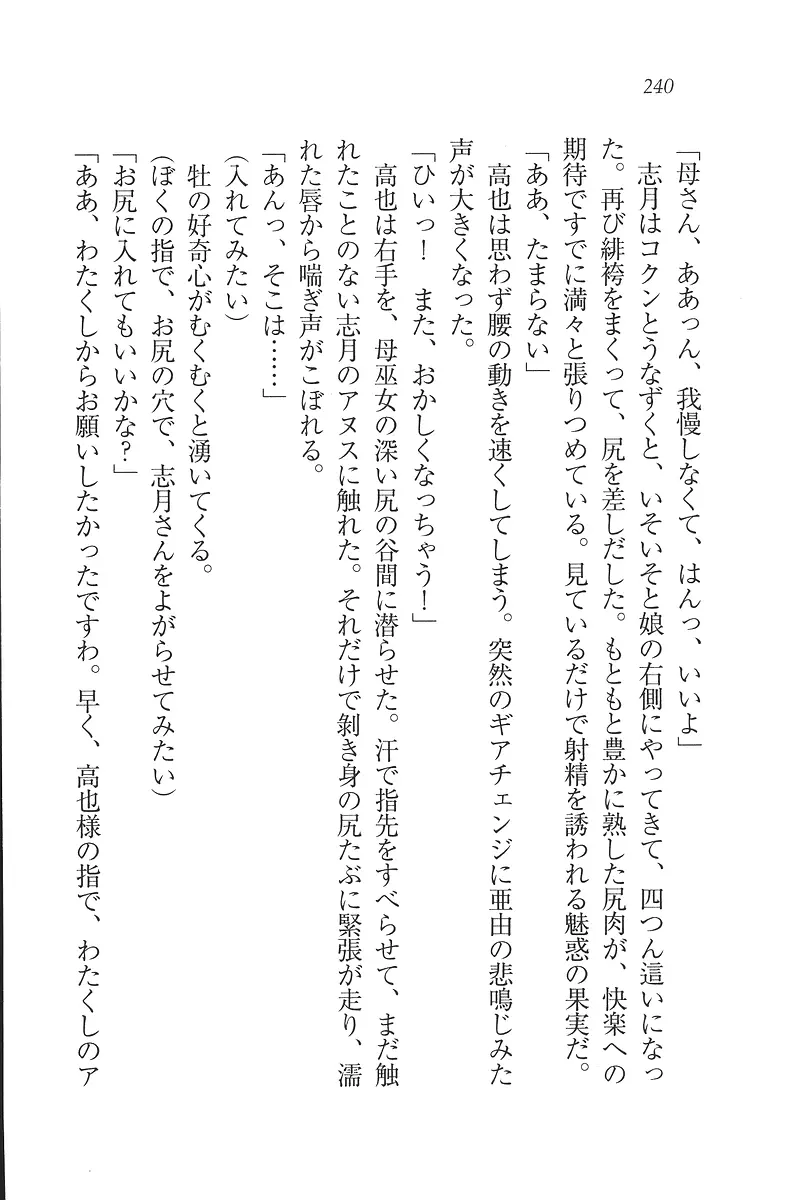 240
「母さん、ああっん、我慢しなくて、はんっ、いいよ」
志月はコクンとうなずくと、いそいそと娘の右側にやってきて、四つん這いになっ
た。再び緋袴をまくって、尻を差しだした。もともと豊かに熟した尻肉が、快楽への
期待ですでに満々と張りつめている。見ているだけで射精を誘われる魅惑の果実だ。
「ああ、たまらない」
高也は思わず腰の動きを速くしてしまう。突然のギアチェンジに亜由の悲鳴じみた
声が大きくなった。
「ひいっ！　また、おかしくなっちゃう！」
高也は右手を、母巫女の深い尻の谷間に潜らせた。汗で指先をすべらせて、まだ触
れたことのない志月のアヌスに触れた。それだけで剝き身の尻たぶに緊張が走り、濡
れた唇から喘ぎ声がこぼれる。
「あんっ、そこは……」
（入れてみたい）
牡の好奇心がむくむくと湧いてくる。
（ぼくの指で、お尻の穴で、志月さんをよがらせてみたい）
「お尻に入れてもいいかな？」
「ああ、わたくしからお願いしたかったですわ。早く、高也様の指で、わたくしのア